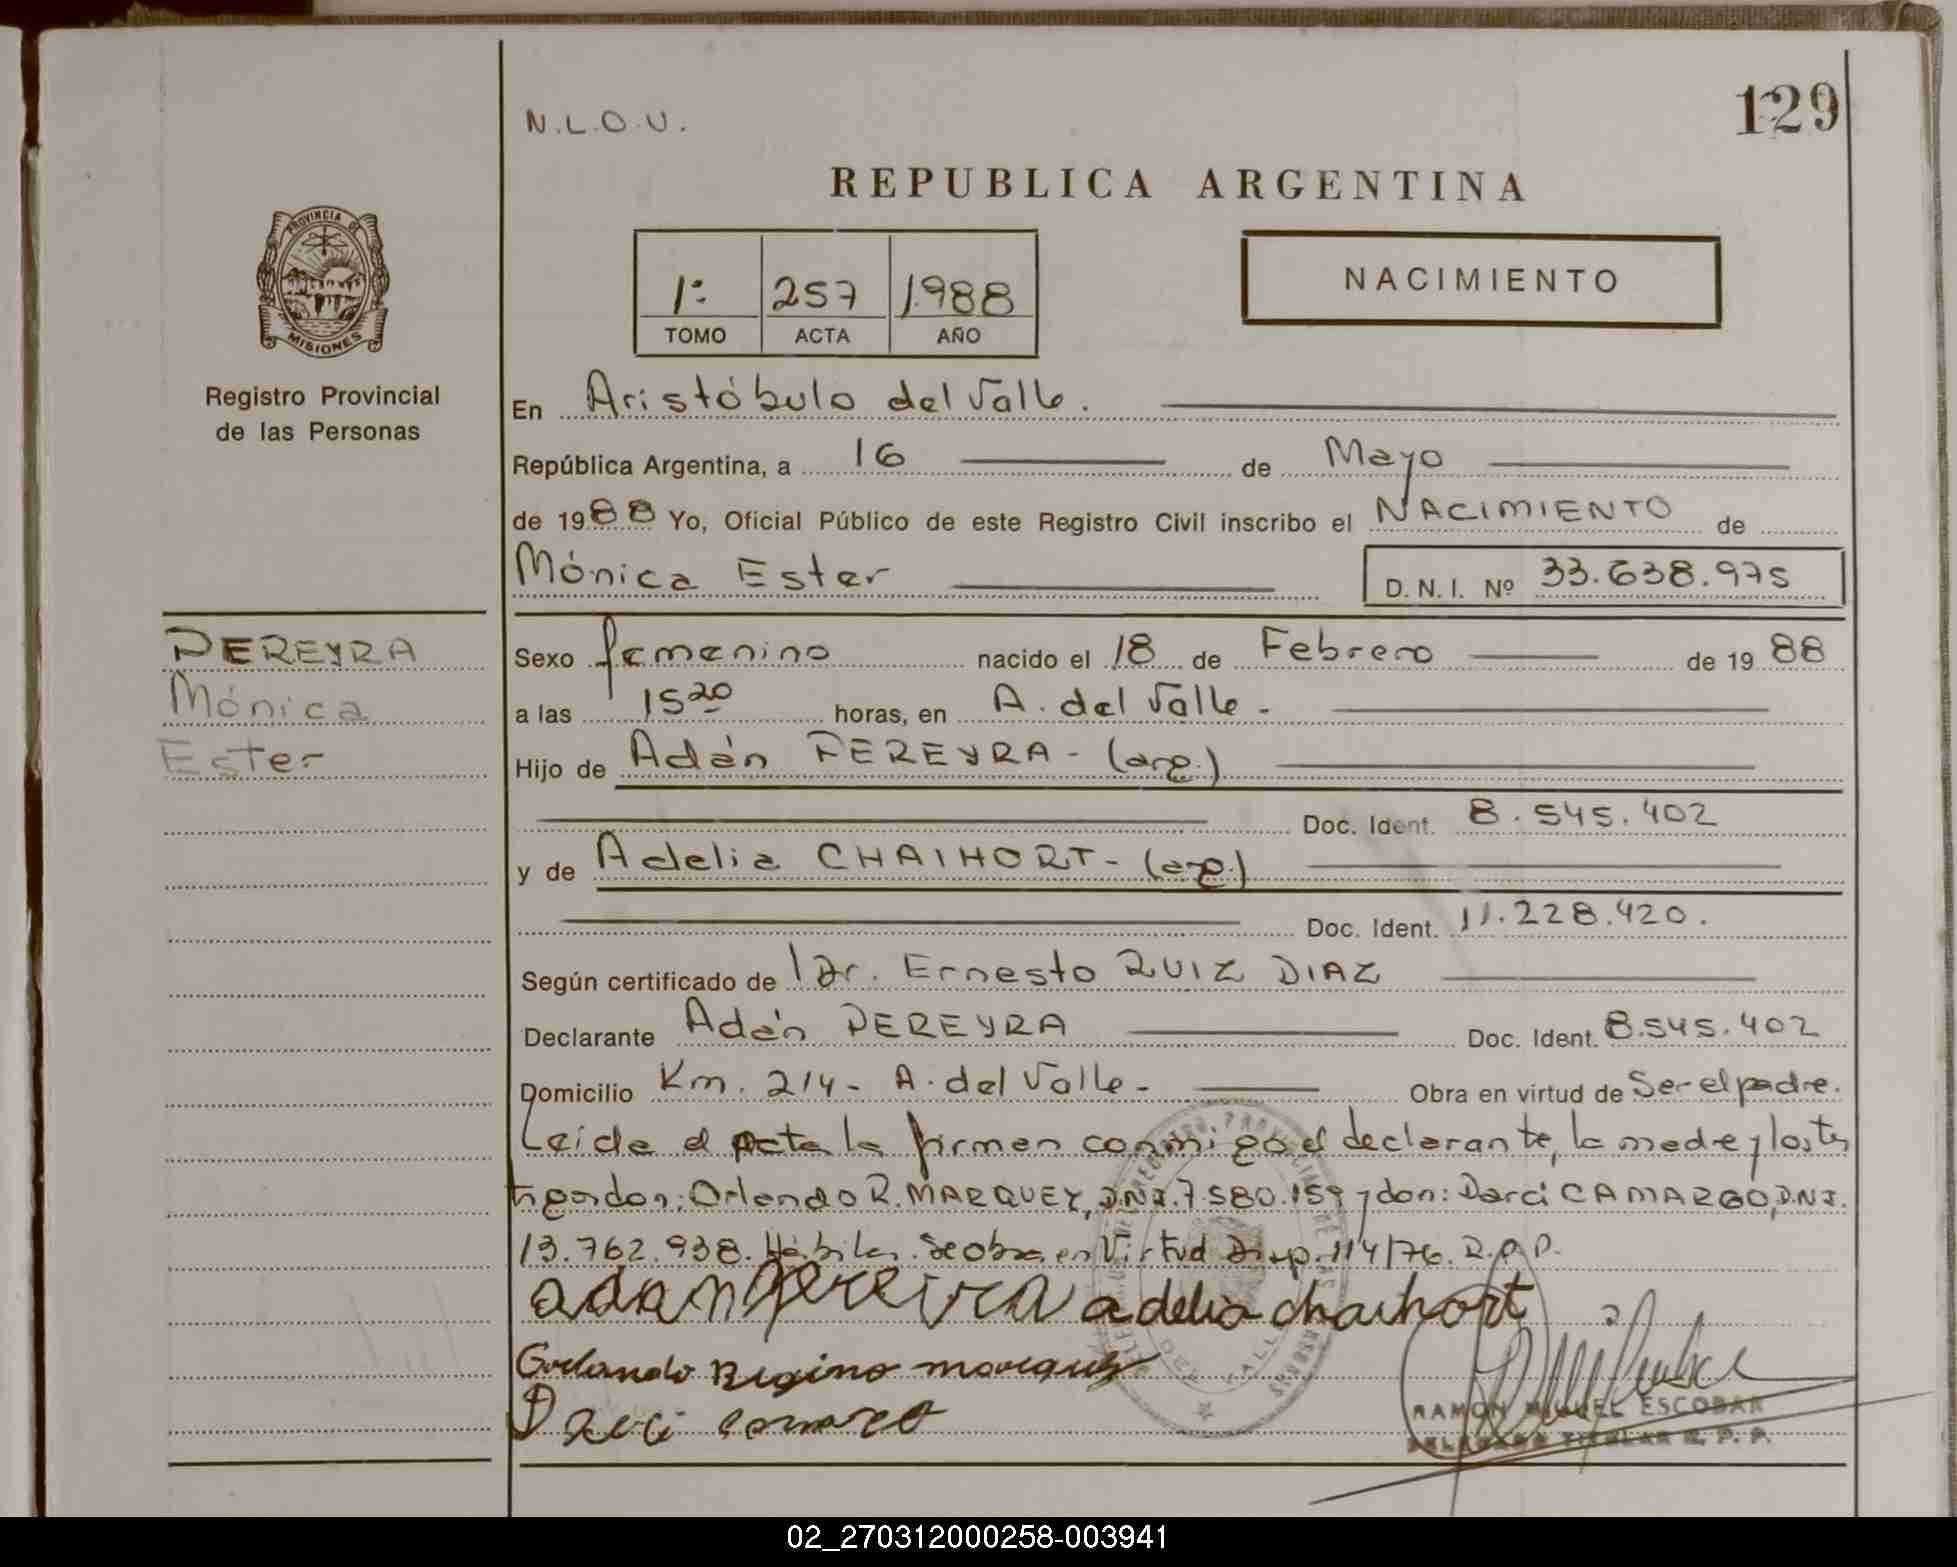 N.L.O.U.
129
REPUBLICA ARGENTINA
PROVINCIA DE
MISIONES
1º 257 1.988
TOMO ACTA AÑO
NACIMIENTO
Registro Provincial
de las Personas
En Aristóbulo del Valle.
República Argentina, a 16 de Mayo
de 1988 Yo, Oficial Público de este Registro Civil inscribo el NACIMIENTO de
Mónica Ester D. N. I. Nº 33.638.975
PEREYRA
Mónica
Ester
Sexo femenino nacido el 18 de Febrero de 1988
a las 15 20 horas, en A. del Valle -
Hijo de Adán PEREYRA - (arg.)
Doc. Ident. 8.545.402
y de Adelia CHAIHORT - (arg.)
Doc. Ident. 11.228.420.
Según certificado de Dr. Ernesto RUIZ DIAZ
Declarante Adán PEREYRA Doc. Ident. 8.545.402
Domicilio Km. 214 - A. del Valle - Obra en virtud de Ser el padre.
Leida el acta la firman conmigo el declarante, la madre y los tes
tigos don: Orlando R. MARQUEZ, D.N.I. 7.580.159 y don: Darci CAMARGO, D.N.I.
13.762.938. Hábiles. Se obra en Virtud Disp. 114/76. R.P.P.
adan pereira adelia chaihort
Orlando Regino marquez
Darci
RAMON MIGUEL ESCOBAR
DELEGADO TITULAR R. P. P.
02_270312000258-003941